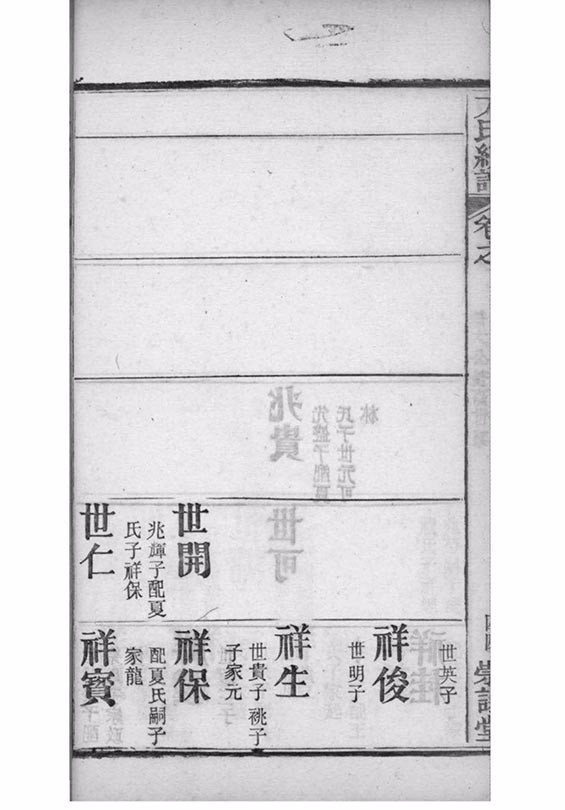 氏
卷之
世開
兆輝子配夏
氏子祥保
世仁
世英子
祥俊
世明子
祥生
世貴子祧子
子家元
祥保
配夏氏嗣子
家龍
祥寶